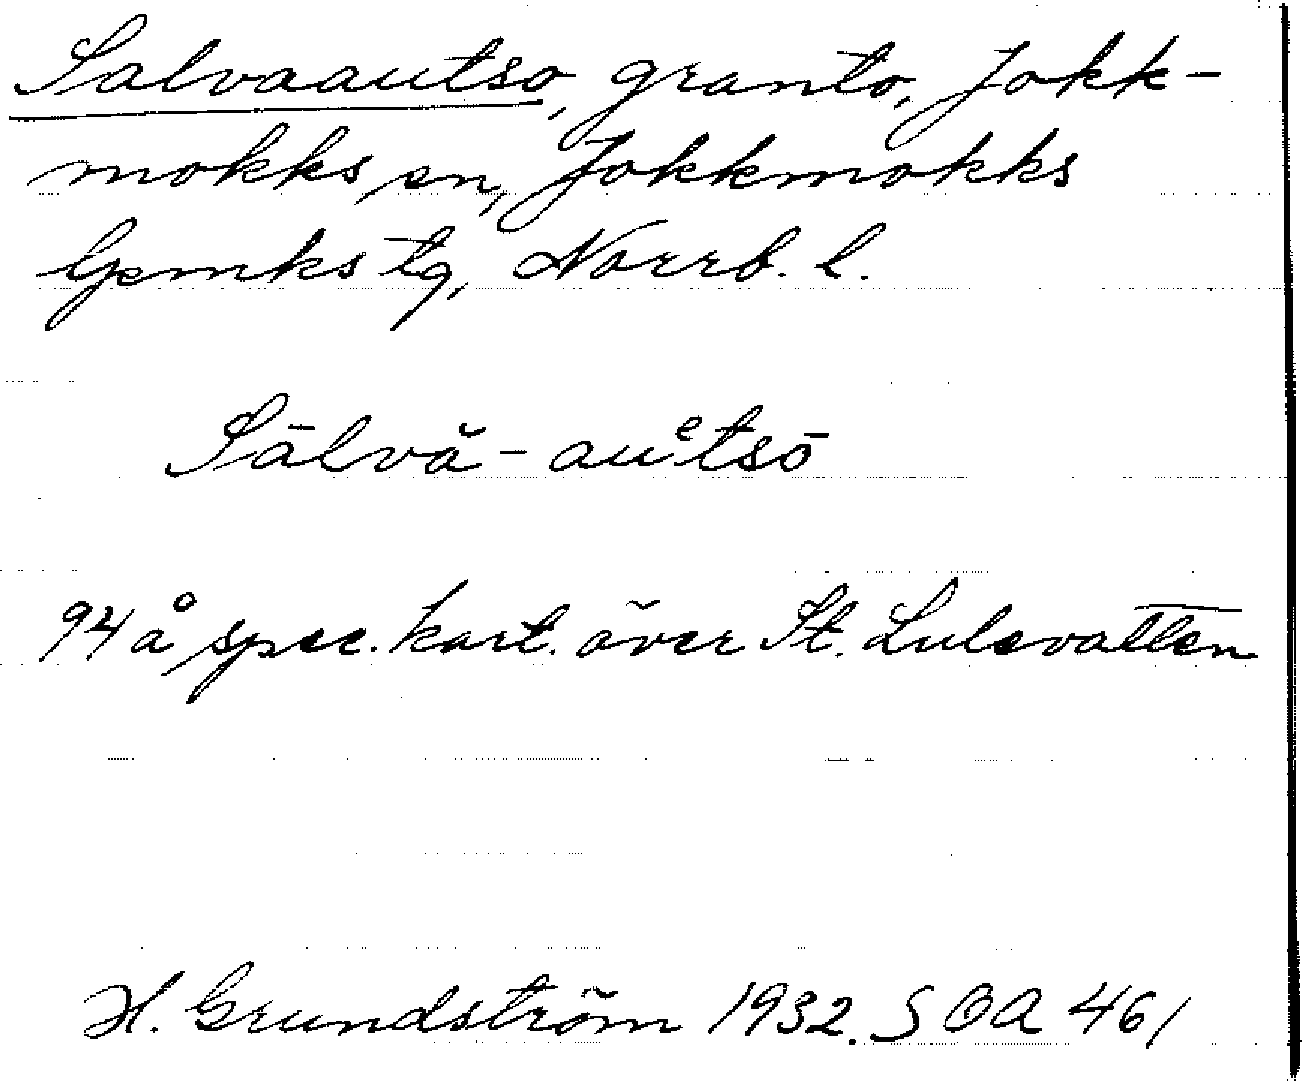 Salvaautso, granto, Jokk-
mokks sn, Jokkmokks
lpmks tg, Norrb. l.
Sālvă-auᵉtsō
94 å spec. kart. över St. Lulevatten
H. Grundström 1932. SOA 461